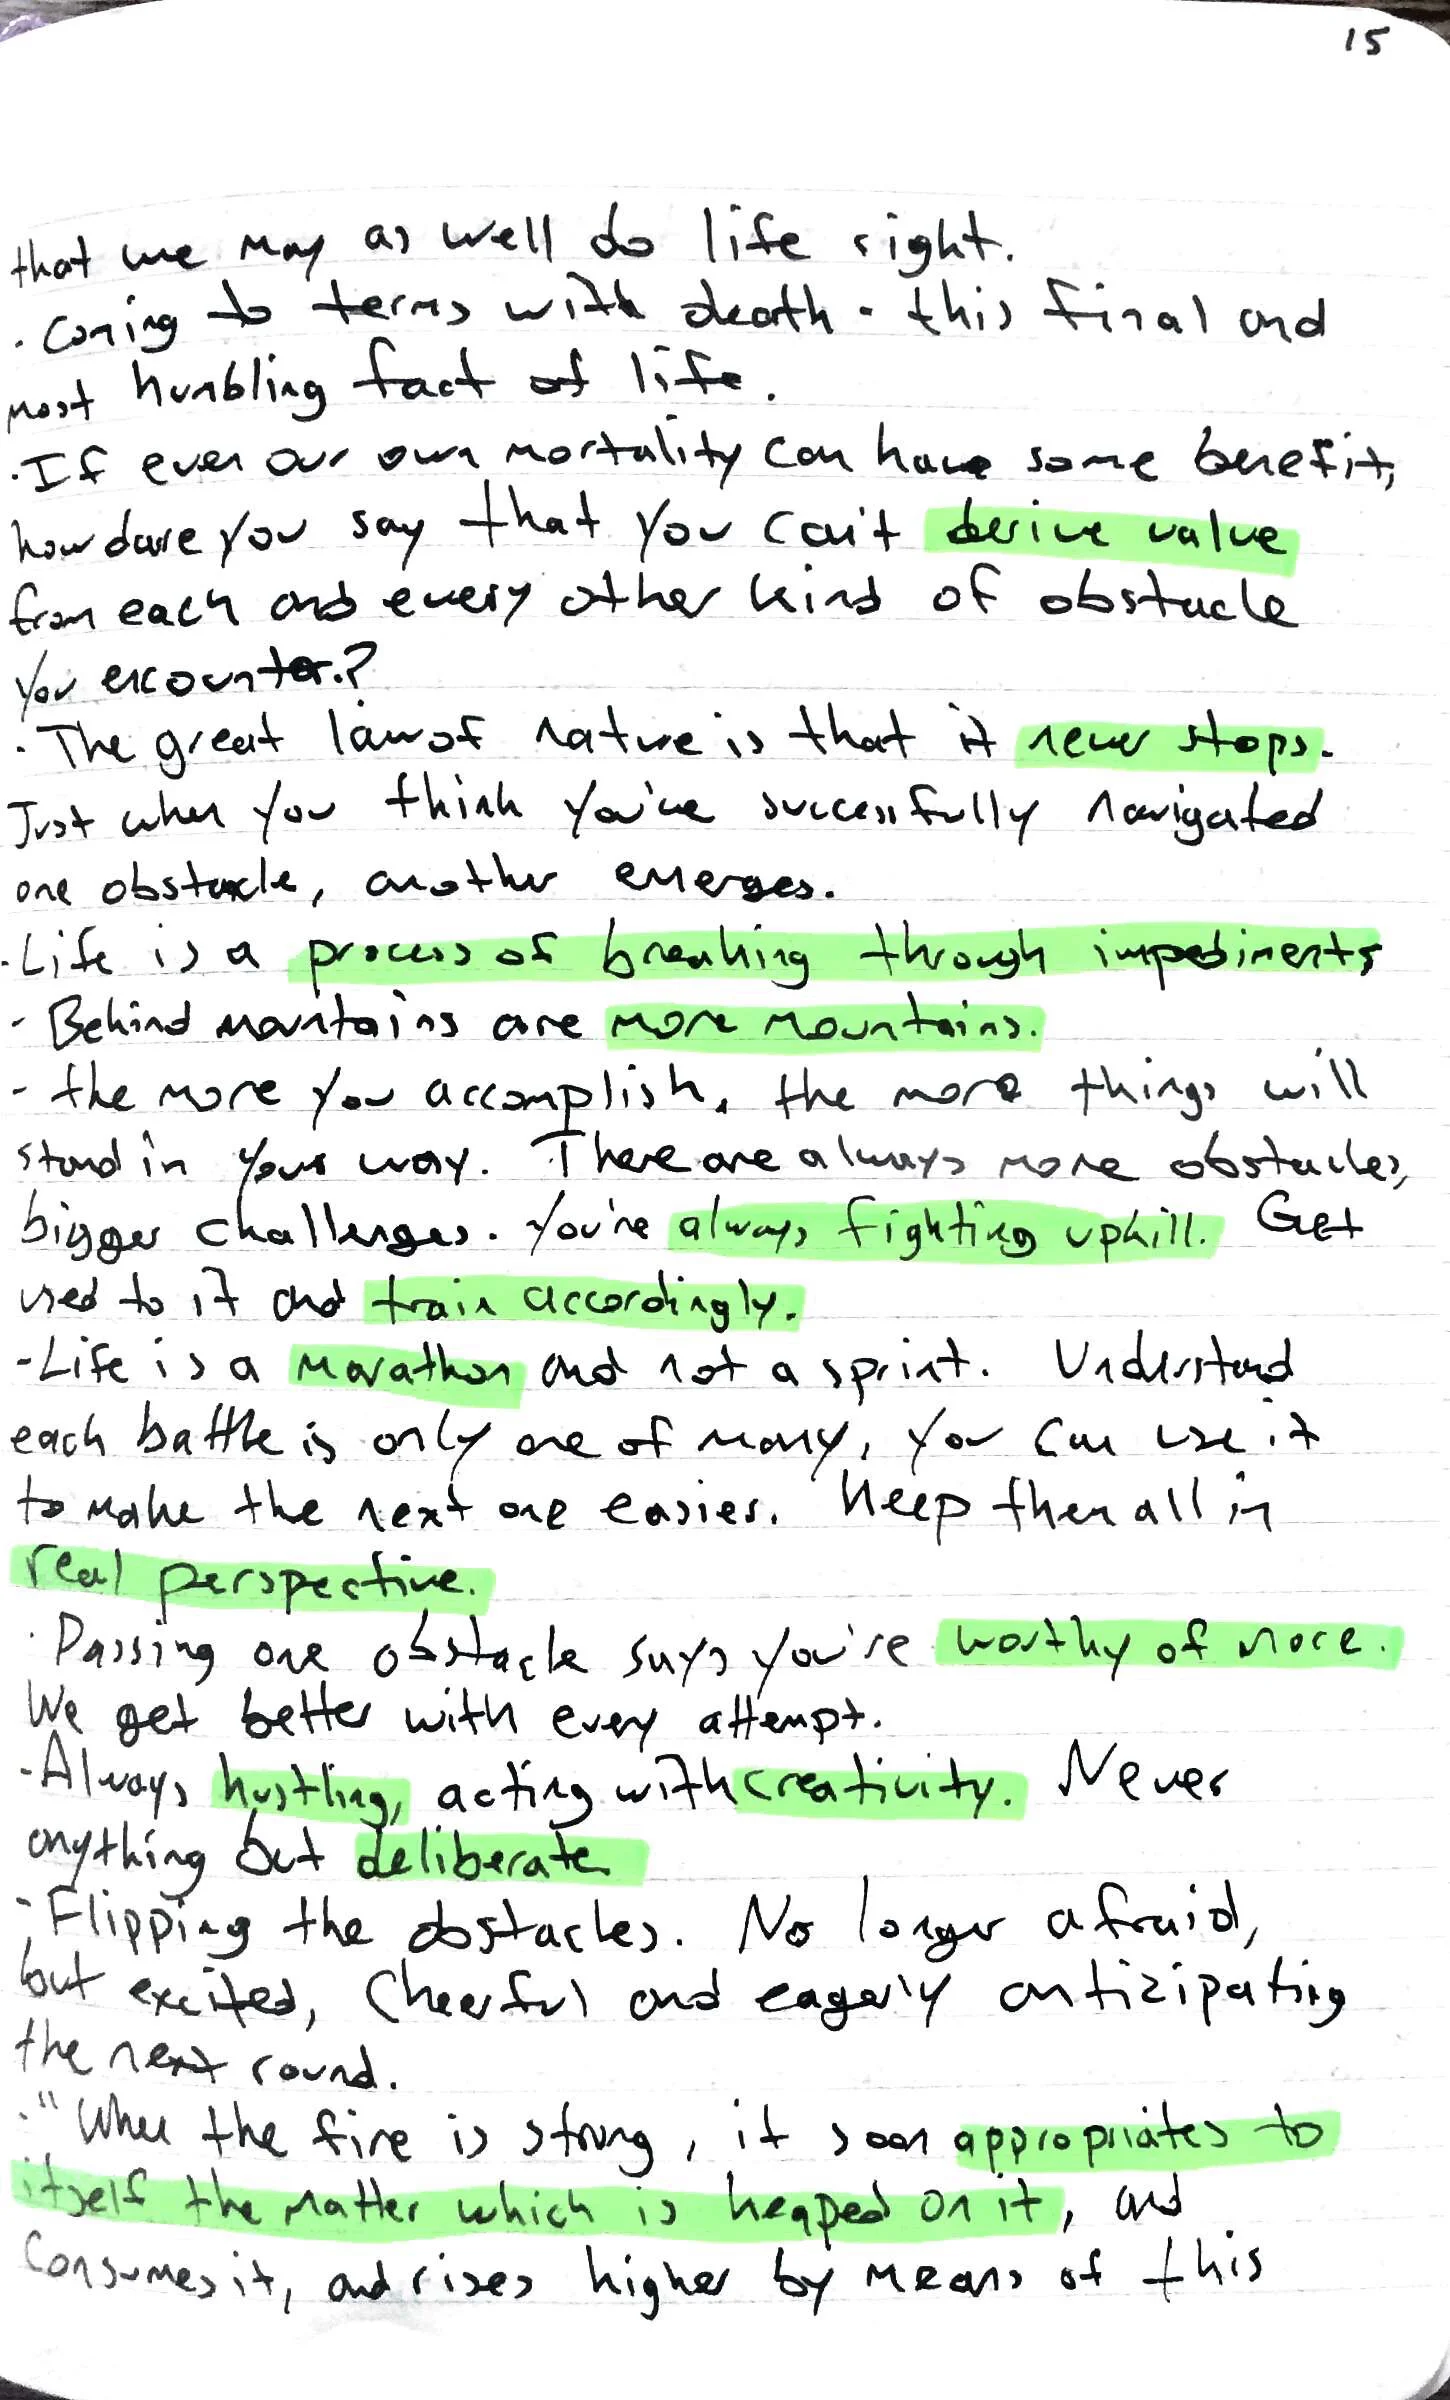 15
that we may as well do life right.
· Coming to terms with death - this final and
most humbling fact of life.
· If even our own mortality can have some benefit,
how dare you say that you can't derive value
from each and every other kind of obstacle
you encounter.?
· The great law of nature is that it never stops.
Just when you think you've successfully navigated
one obstacle, another emerges.
· Life is a process of breaking through impediments
- Behind mountains are more mountains.
- the more you accomplish, the more things will
stand in your way. There are always more obstacles,
bigger challenges. You're always fighting uphill. Get
used to it and train accordingly.
- Life is a marathon and not a sprint. Understand
each battle is only one of many, you can use it
to make the next one easier. Keep them all in
real perspective.
· Passing one obstacle says you're worthy of more.
We get better with every attempt.
- Always hustling, acting with creativity. Never
anything but deliberate
- Flipping the obstacles. No longer afraid,
but excited, cheerful and eagerly anticipating
the next round.
· "When the fire is strong, it soon appropriates to
itself the matter which is heaped on it, and
consumes it, and rises higher by means of this